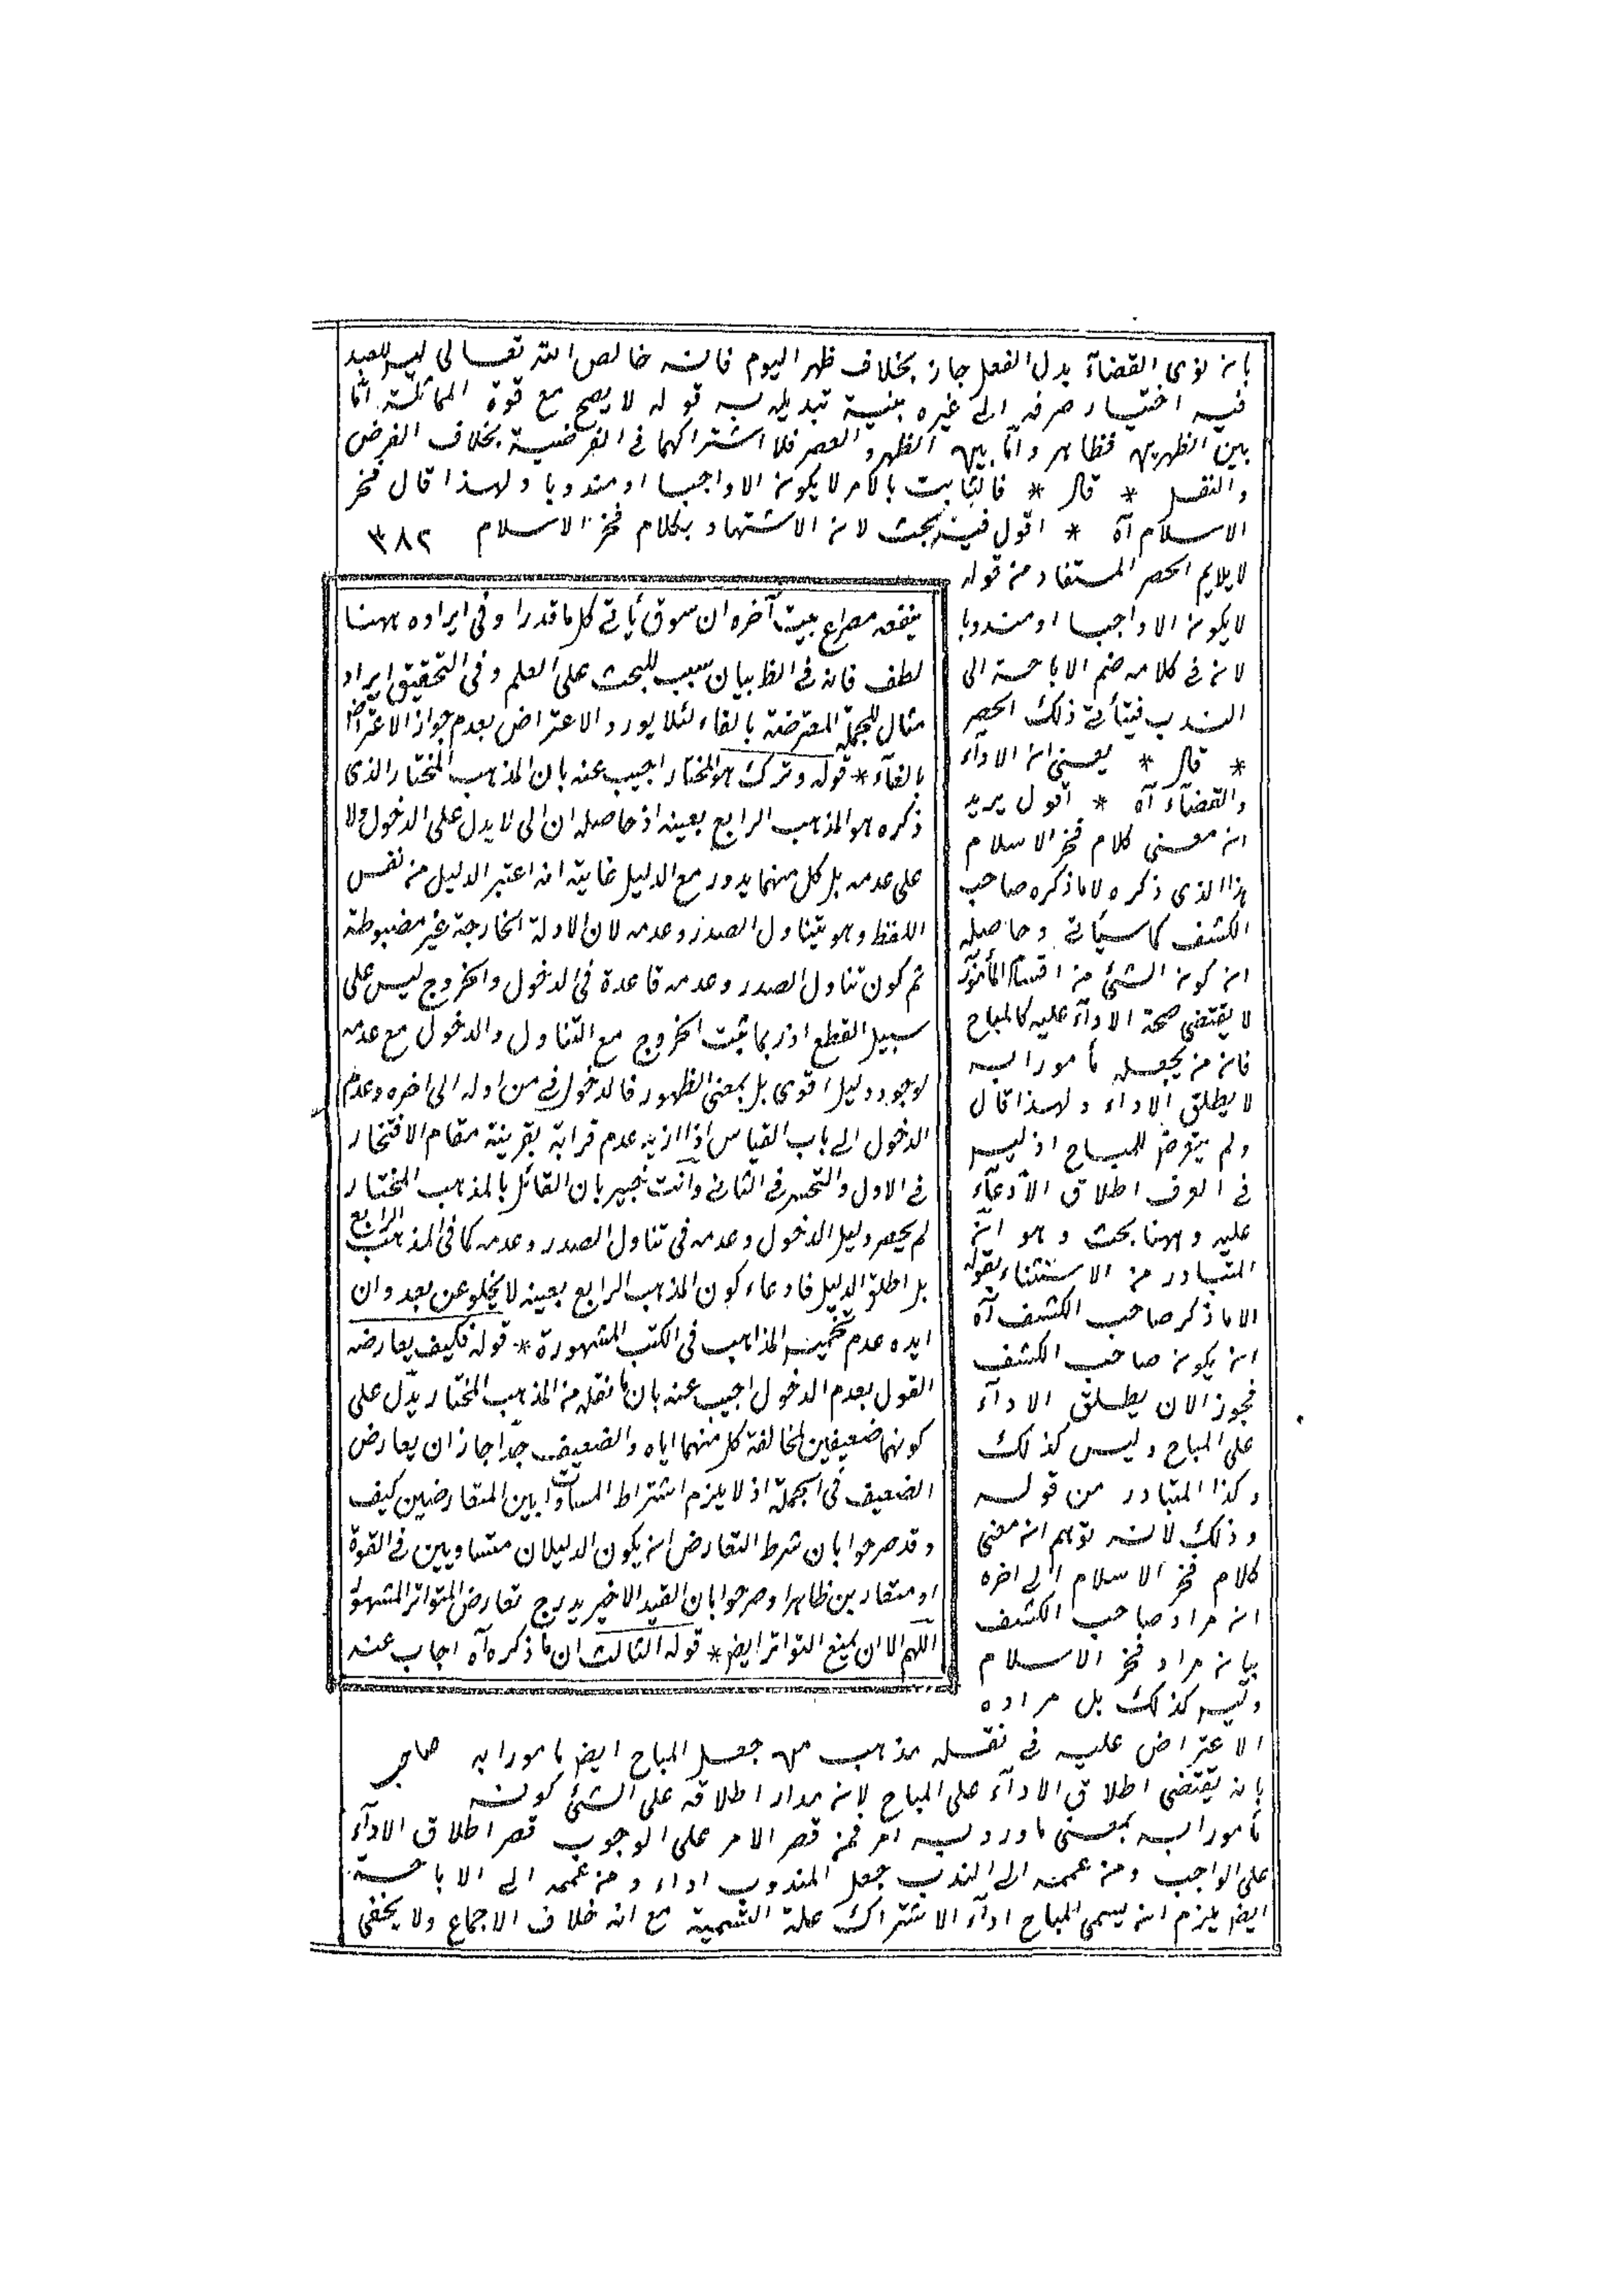 بان نوى القضآء بدل الفعل جاز بخلاف ظهر اليوم فانه خالص الله تعالى ليس للعبد
فيه اختيار صرفه الى غيره بنية تبديله به قوله لا يصح مع قوة المماثلة اما
بين الظهرين فظاهر واما بين الظهر والعصر فلاشتراكهما فى الفرضية بخلاف الفرض
والنفل * قال * فالثابت بالامر لا يكون الا واجبا او مندوبا ولهذا قال فخر
الاسلام آه * اقول فيه بحث لان الاستشهاد بكلام فخر الاسلام ٣٨٢
لا يلايم الحصر المستفاد من قوله
لا يكون الا واجبا او مندوبا
لان فى كلامه ضم الاباحة الى
الندب فيتأتى ذلك الحصر
* قال * يعنى ان الاداء
والقضآء آه * اقول يريد
ان معنى كلام فخر الاسلام
هذا الذى ذكره لا ما ذكره صاحب
الكشف كما سيأتى وحاصله
ان كون الشئ من اقسام المأمور
لا يقتضى صحة الادآء عليه كالمباح
فان من يجعله مأمورا به
لا يطلق الاداء ولهذا قال
ولم يتعرض للمباح اذ ليس
فى العرف اطلاق الادآء
عليه وههنا بحث وهو ان
المتبادر من الاستثناء بقوله
الا ما ذكر صاحب الكشف آه
ان يكون صاحب الكشف
مجوز الان يطلق الادآء
على المباح وليس كذلك
وكذا المتبادر من قوله
وذلك لانه توهم ان معنى
كلام فخر الاسلام الى اخره
ان مراد صاحب الكشف
بيان مراد فخر الاسلام
وليس كذلك بل مراده
الاعتراض عليه فى نقله مذهب من جعل المباح ايض مامورا به
بانه يقتضى اطلاق الادآء على المباح لان مدار اطلاقه على الشئ كونه
مأمورا به بمعنى ما ورد به امر فمن قصر الامر على الوجوب قصر اطلاق الادآء
على الواجب ومن عممه الى الندب جعل المندوب اداء ومن عممه الى الاباحة
ايض يلزم ان يسمى المباح ادآء الاشتراك علة التسمية مع انه خلاف الاجماع ولا يخفى
ينفعه مصراع بيت آخره ان سوق يأتى كل ما قدرا وفى ايراده ههنا
لطف فانه فى الظ بيان سبب للبحث على العلم وفى التحقيق ايراد
مثال للجملة المعترضة بالفاء لئلا يورد الاعتراض بعدم جواز الاعتراض
بالفآء * قوله وترك هو المختار اجيب عنه بان المذهب المختار الذى
ذكره هو المذهب الرابع بعينه اذ حاصله ان الى لا يدل على الدخول ولا
على عدمه بل كل منهما يدور مع الدليل غايته انه اعتبر الدليل من نفس
اللفظ وهو تناول الصدر وعدمه لان الادلة الخارجة غير مضبوطة
ثم كون تناول الصدر وعدمه قاعدة فى الدخول والخروج ليس على
سبيل القطع اذ ربما ثبت الخروج مع التناول والدخول مع عدمه
لوجود دليل اقوى بل بمعنى الظهور فالدخول فى من اوله الى اخره وعدم
الدخول الى باب القياس اذا اريد عدم قراءة بقرينة مقام الافتخار
فى الاول والتحسر فى الثانى وانت خبير بان القائل بالمذهب المختار
لم يحصر دليل الدخول وعدمه فى تناول الصدر وعدمه كما فى المذهب الرابع
بل اطلق الدليل فادعاء كون المذهب الرابع بعينه لا يخلو عن بعد وان
ايده عدم تخميس المذاهب فى الكتب المشهورة * قوله فكيف يعارضه
القول بعدم الدخول اجيب عنه بان ما نقله من المذهب المختار يدل على
كونهما ضعيفين لمخالفة كل منهما اياه والضعيف جدا جاز ان يعارض
الضعيف فى الجملة اذ لا يلزم اشتراط المساواة بين المتعارضين كيف
وقد صرحوا بان شرط التعارض ان يكون الدليلان متساويين فى القوة
او متقاربين ظاهرا وصرحوا بان القيد الاخير يدرج تعارض المتواتر المشهور
اللهم الا ان يمنع التواتر ايض * قوله الثالث ان ما ذكره آه اجاب عنه